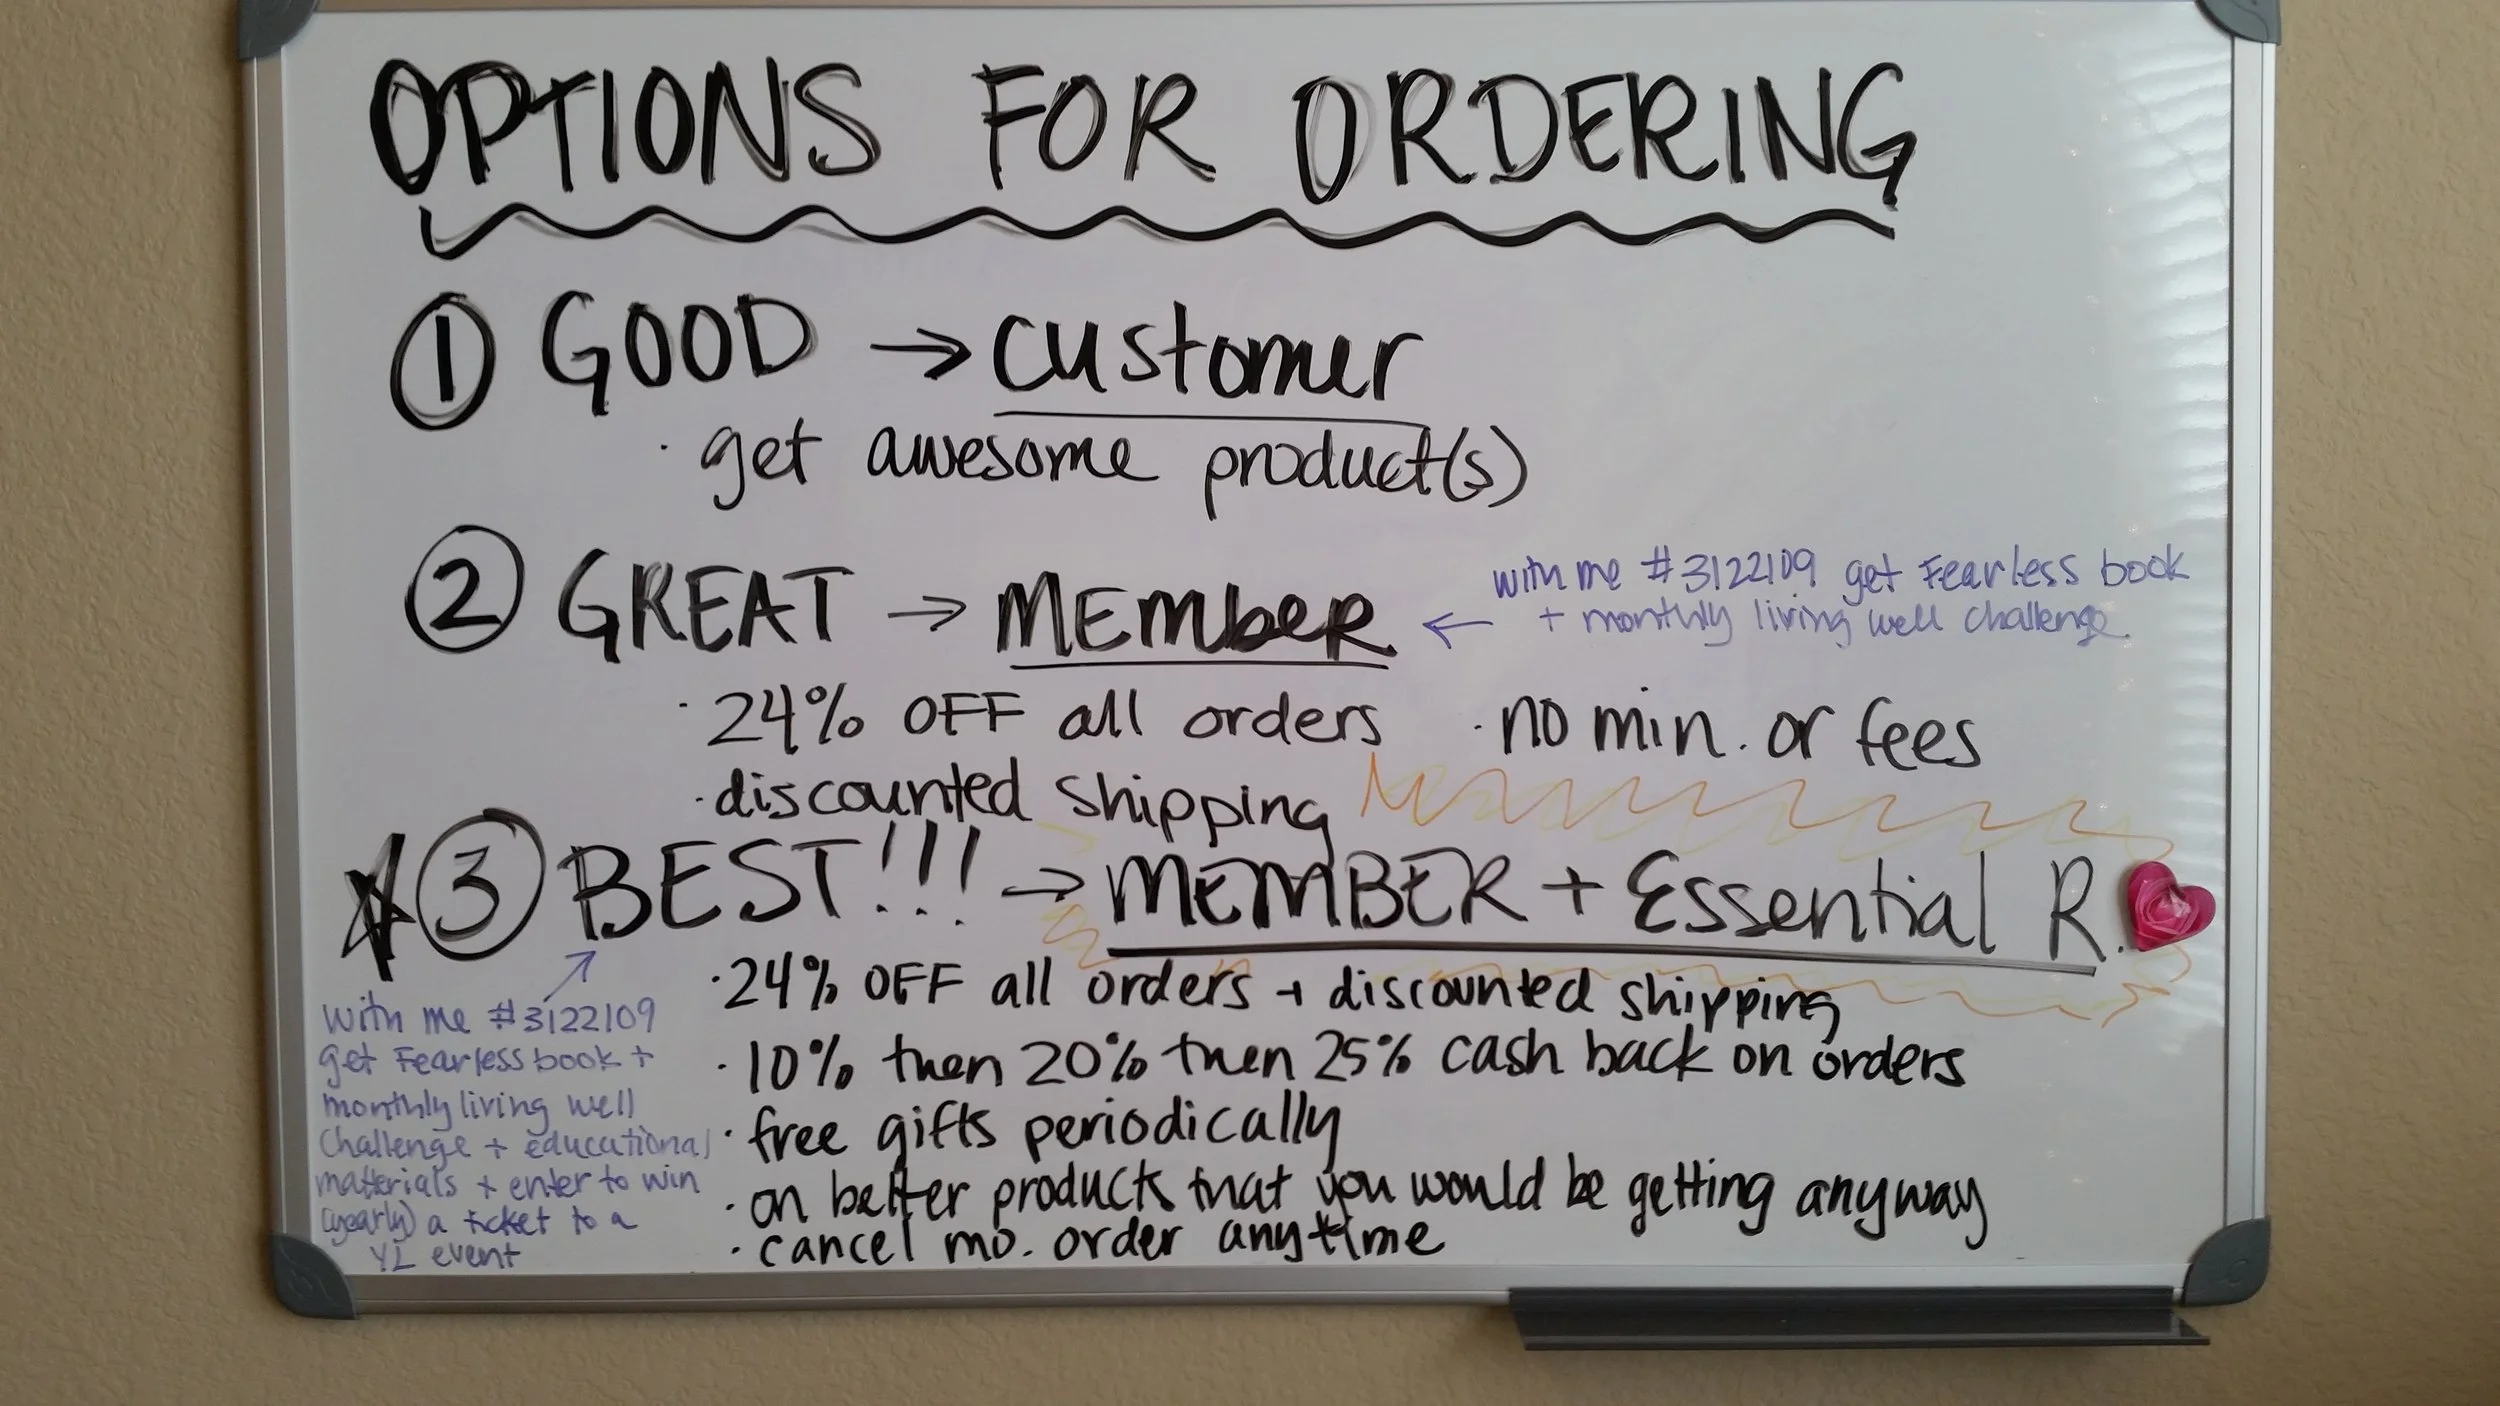 OPTIONS FOR ORDERING
① GOOD → customer
· get awesome product(s)
② GREAT → MEMbeR ← with me #3122109 get Fearless book
+ monthly living well challenge.
· 24% OFF all orders · no min. or fees
· discounted shipping
③ BEST!!! → MEMBER + Essential R.
· 24% OFF all orders + discounted shipping
· 10% then 20% then 25% cash back on orders
· free gifts periodically
· on better products that you would be getting anyway
· cancel mo. order anytime
with me #3122109
get Fearless book +
monthly living well
challenge + educational
materials + enter to win
(yearly) a ticket to a
YL event